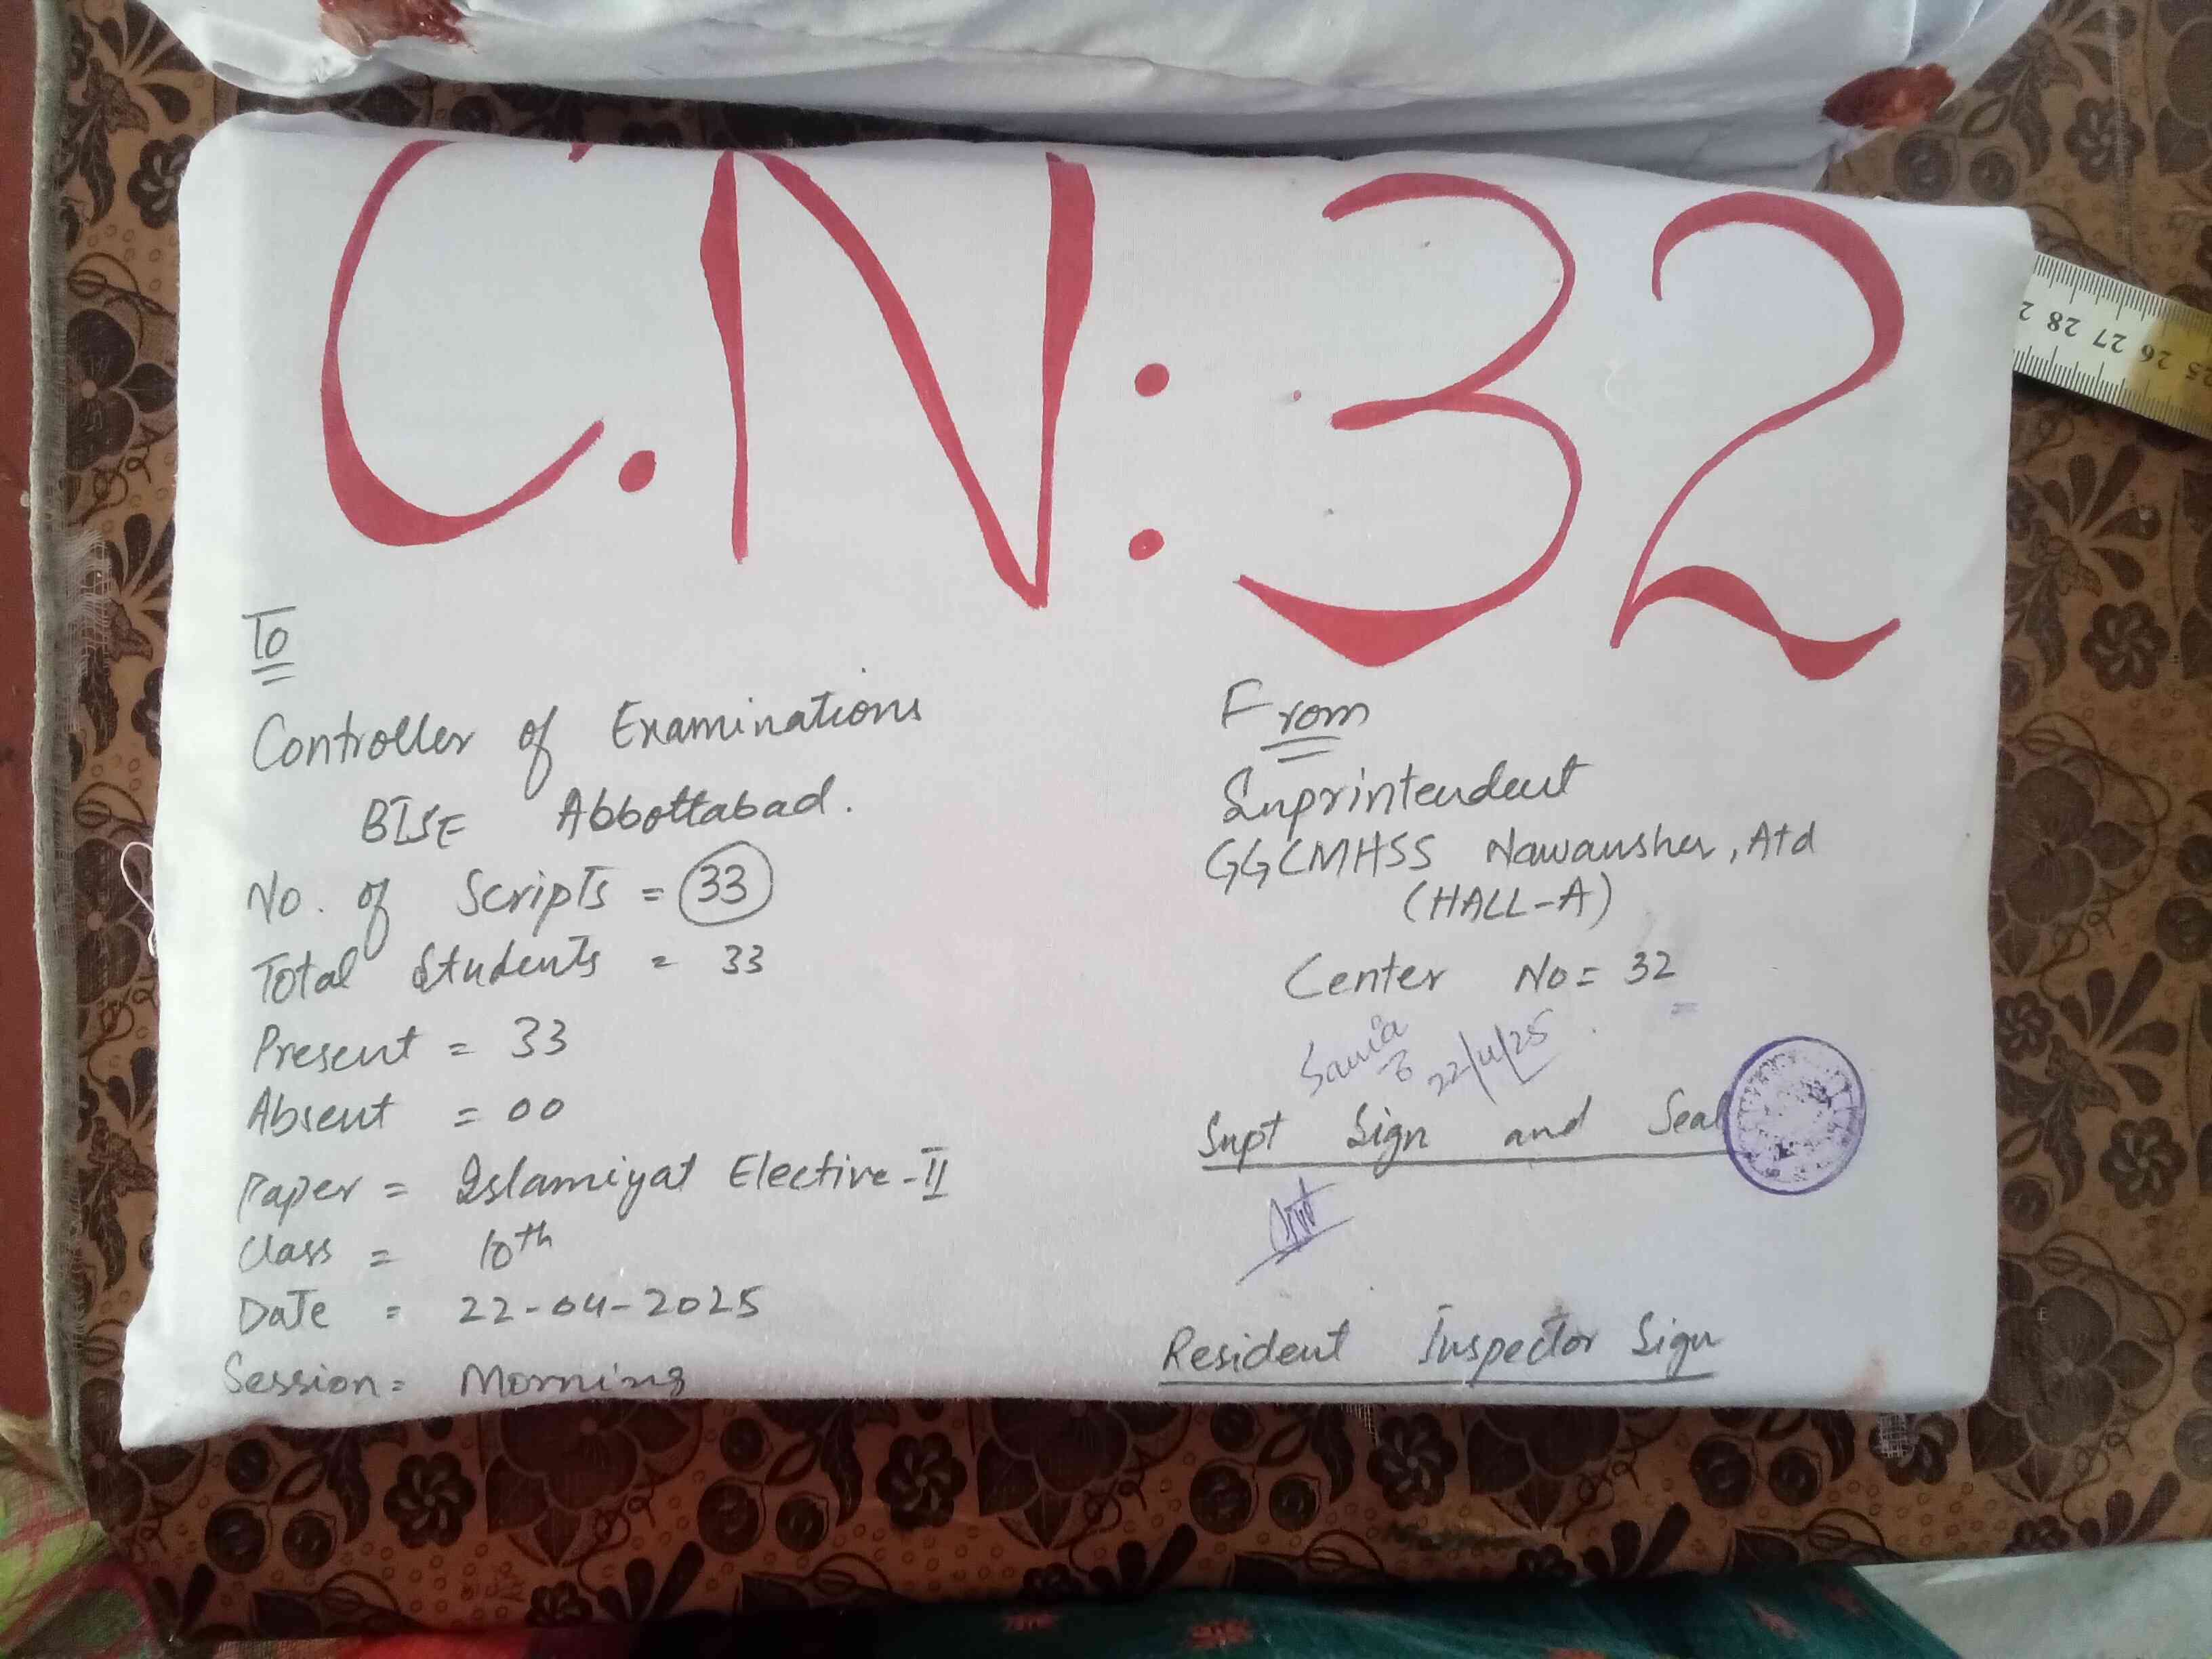 C.N: 32
To
Controller of Examinations
BISE Abbottabad.
No. of Scripts = 33
Total Students = 33
Present = 33
Absent = 00
Paper = Islamiyat Elective-II
Class = 10th
Date = 22-04-2025
Session = Morning
From
Suprintendent
GGCMHSS Nawansher, Atd
(HALL-A)
Center No = 32
22/4/25
Supt Sign and Seal
Resident Inspector Sign
28 27 26 25